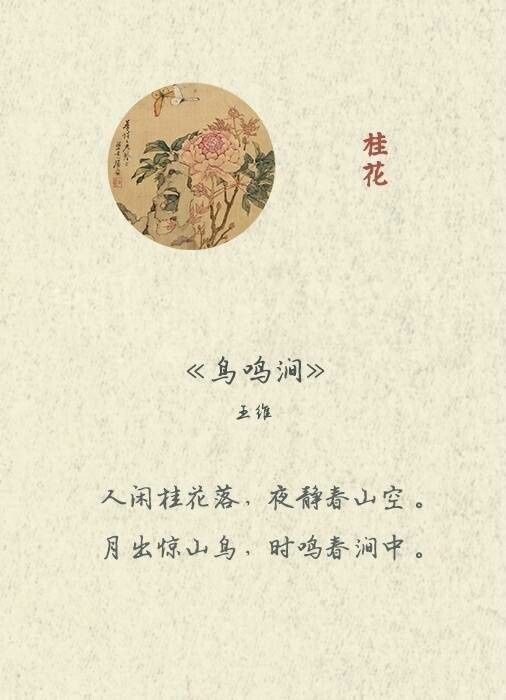 桂花
《鸟鸣涧》
王维
人闲桂花落，夜静春山空。
月出惊山鸟，时鸣春涧中。